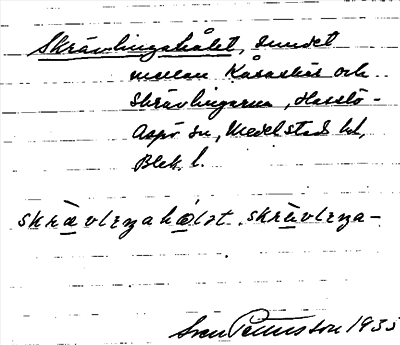 Skrävlingahålet, sundet
mellan Kåsaskär och
Skrävlingarna, Hasslö-
Aspö sn, Medelstads hd,
Blek. l.
skrävlınahålət. skrävlına-
Sven Pettersson 1935